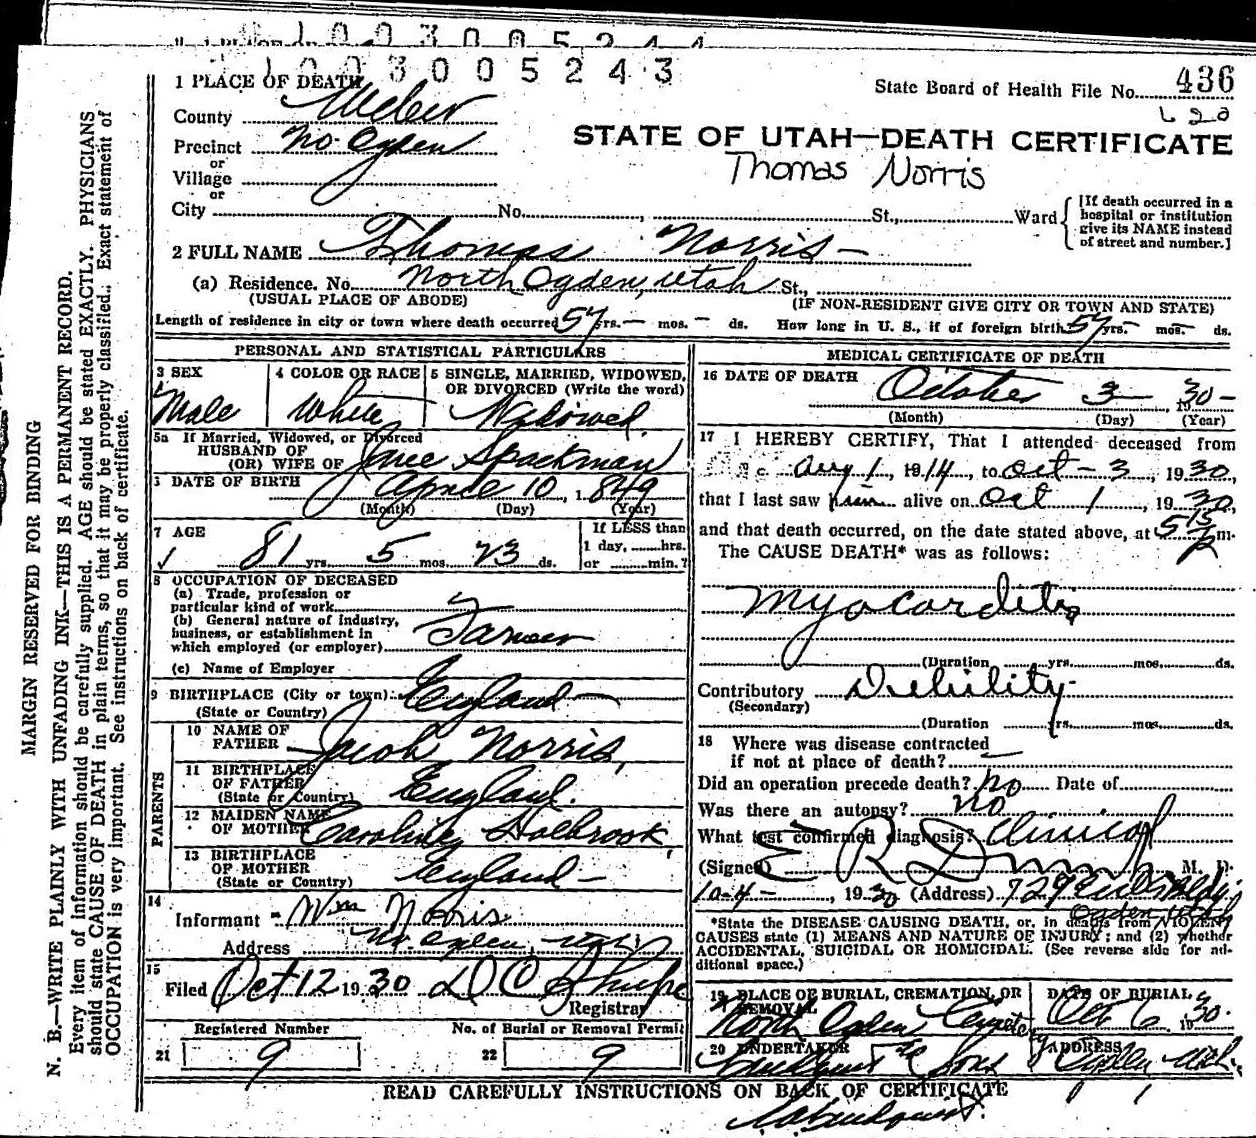 1003005244
1003005243
1 PLACE OF DEATH
State Board of Health File No. 436
County Weber
Precinct No. Ogden
or
Village
or
City No. St., Ward
STATE OF UTAH—DEATH CERTIFICATE
Thomas Norris
[If death occurred in a
hospital or institution
give its NAME instead
of street and number.]
2 FULL NAME Thomas Norris
(a) Residence. No. North Ogden, Utah St.,
(USUAL PLACE OF ABODE) (IF NON-RESIDENT GIVE CITY OR TOWN AND STATE)
Length of residence in city or town where death occurred 57 yrs. — mos. — ds. How long in U. S., if of foreign birth 57 yrs. — mos. — ds.
PERSONAL AND STATISTICAL PARTICULARS
3 SEX
Male
4 COLOR OR RACE
White
5 SINGLE, MARRIED, WIDOWED,
OR DIVORCED (Write the word)
Widowed
5a If Married, Widowed, or Divorced
HUSBAND OF
(OR) WIFE OF Jane Spackman
DATE OF BIRTH April 10, 1849
(Month) (Day) (Year)
7 AGE
81 yrs. 5 mos. 23 ds.
If LESS than
1 day, hrs.
or min.?
8 OCCUPATION OF DECEASED
(a) Trade, profession or
particular kind of work
(b) General nature of industry,
business, or establishment in
which employed (or employer)
Farmer
(c) Name of Employer
9 BIRTHPLACE (City or town) England
(State or Country)
PARENTS
10 NAME OF
FATHER Jacob Norris,
11 BIRTHPLACE
OF FATHER England.
(State or Country)
12 MAIDEN NAME
OF MOTHER Caroline Holbrook
13 BIRTHPLACE
OF MOTHER England
(State or Country)
14
Informant Wm Norris
Address No. Ogden, Utah
15
Filed Oct 12 1930 D C Shupe
Registrar
Registered Number
21 9
No. of Burial or Removal Permit
22 9
MEDICAL CERTIFICATE OF DEATH
16 DATE OF DEATH October 3 1930
(Month) (Day) (Year)
17 I HEREBY CERTIFY, That I attended deceased from
Aug 1 1914, to Oct - 3, 1930,
that I last saw him alive on Oct 1, 1930,
and that death occurred, on the date stated above, at 5 15 p m.
The CAUSE DEATH* was as follows:
Myocarditis
(Duration yrs. mos. ds.
Contributory Debility
(Secondary)
(Duration yrs. mos. ds.
18 Where was disease contracted
if not at place of death? —
Did an operation precede death? No Date of
Was there an autopsy? no
What test confirmed diagnosis? Clinical
(Signed) E R Dumke M. D.
10-4- 1930 (Address) 729 Eccles Bldg.
Ogden Utah
*State the DISEASE CAUSING DEATH, or, in deaths from VIOLENT
CAUSES state (1) MEANS AND NATURE OF INJURY; and (2) whether
ACCIDENTAL, SUICIDAL OR HOMICIDAL. (See reverse side for ad-
ditional space.)
19 PLACE OF BURIAL, CREMATION, OR
REMOVAL
North Ogden Cemetery
DATE OF BURIAL
Oct 6 1930
20 UNDERTAKER
& Sons
ADDRESS
Ogden Utah.
READ CAREFULLY INSTRUCTIONS ON BACK OF CERTIFICATE
MARGIN RESERVED FOR BINDING
N. B.—WRITE PLAINLY WITH UNFADING INK—THIS IS A PERMANENT RECORD.
Every item of information should be carefully supplied. AGE should be stated EXACTLY. PHYSICIANS
should state CAUSE OF DEATH in plain terms, so that it may be properly classified. Exact statement of
OCCUPATION is very important. See instructions on back of certificate.